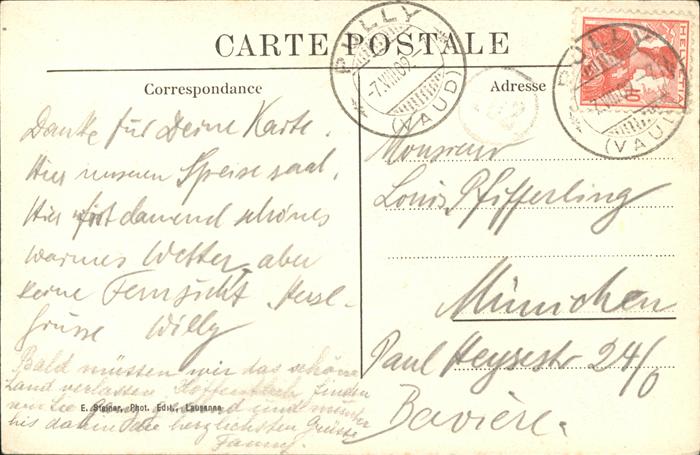 CARTE POSTALE
Correspondance
Adresse
PULLY
-7.VIII.09
(VAUD)
PULLY
(VAUD)
HELVETIA
10
Danke für Deine Karte.
Hier unseren Speisesaal.
Hier ist dauernd schönes
warmes Wetter, aber
keine Fernsicht. Herzl-
Grüsse Willy
Bald müssen wir das schöne
Land verlassen. Hoffentlich finden
wir Sie und munter
bis dahin die herzlichsten Grüsse
Fanny.
E. Steiner, Phot. Edit., Lausanne
Monsieur
Louis Pfifferling
München
Paul Heysestr 24/0
Bavière.